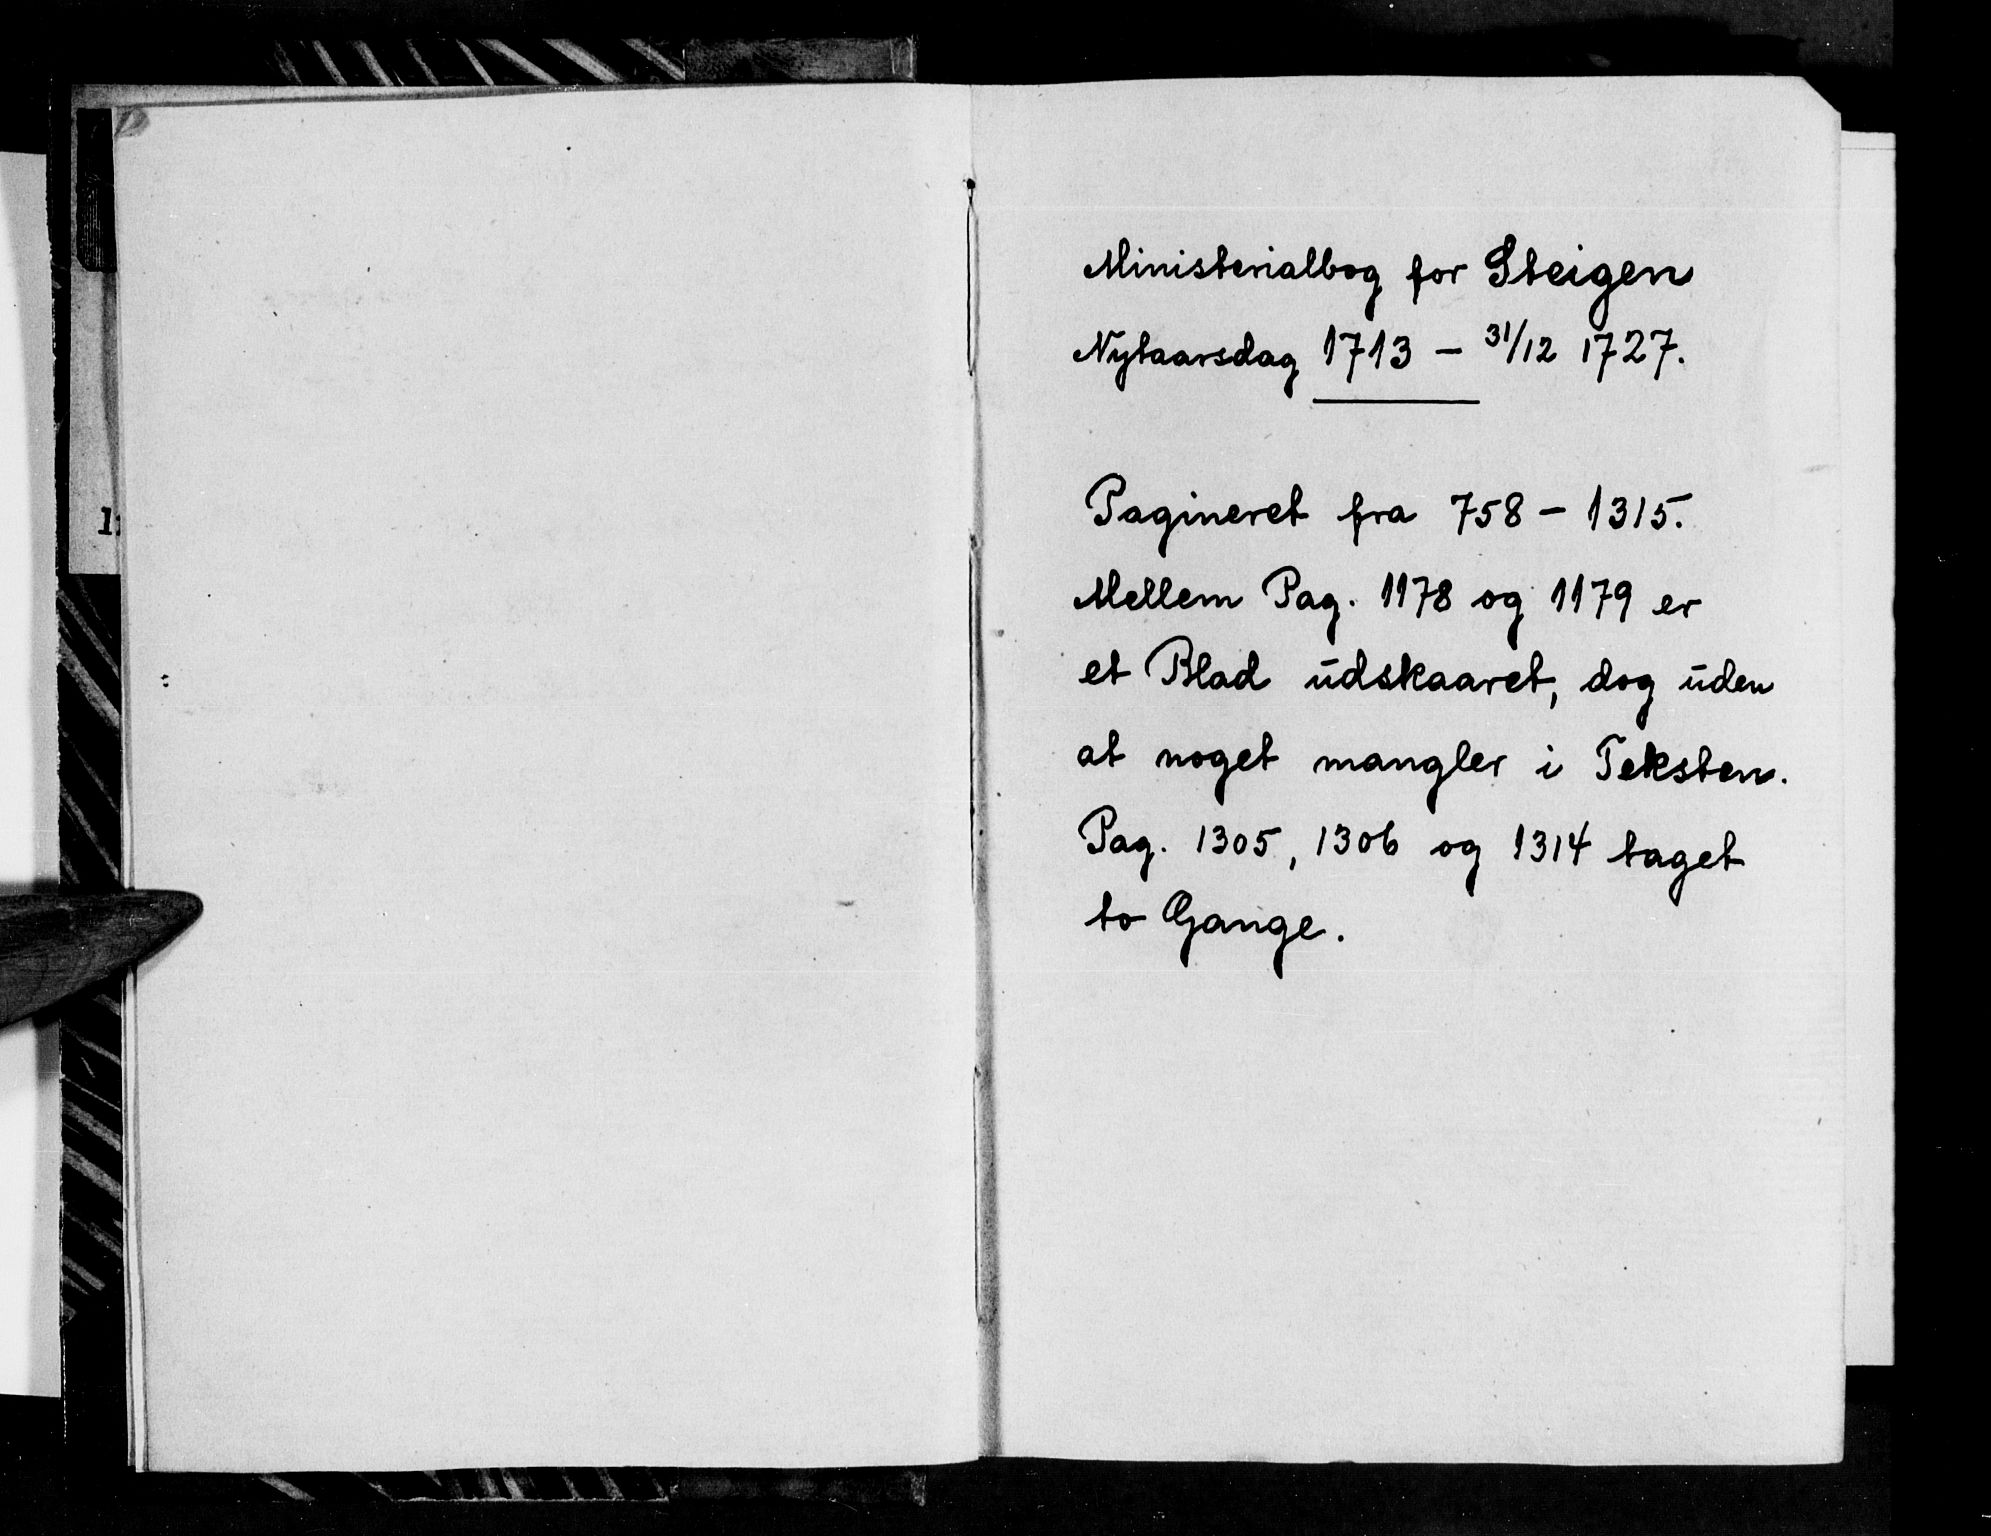 Ministerialbog for Steigen
Nytaarsdag 1713 – 31/12 1727.
Pagineret fra 758 – 1315.
Mellem Pag. 1178 og 1179 er
et Blad udskaaret, dog uden
at noget mangler i Teksten.
Pag. 1305, 1306 og 1314 taget
to Gange.